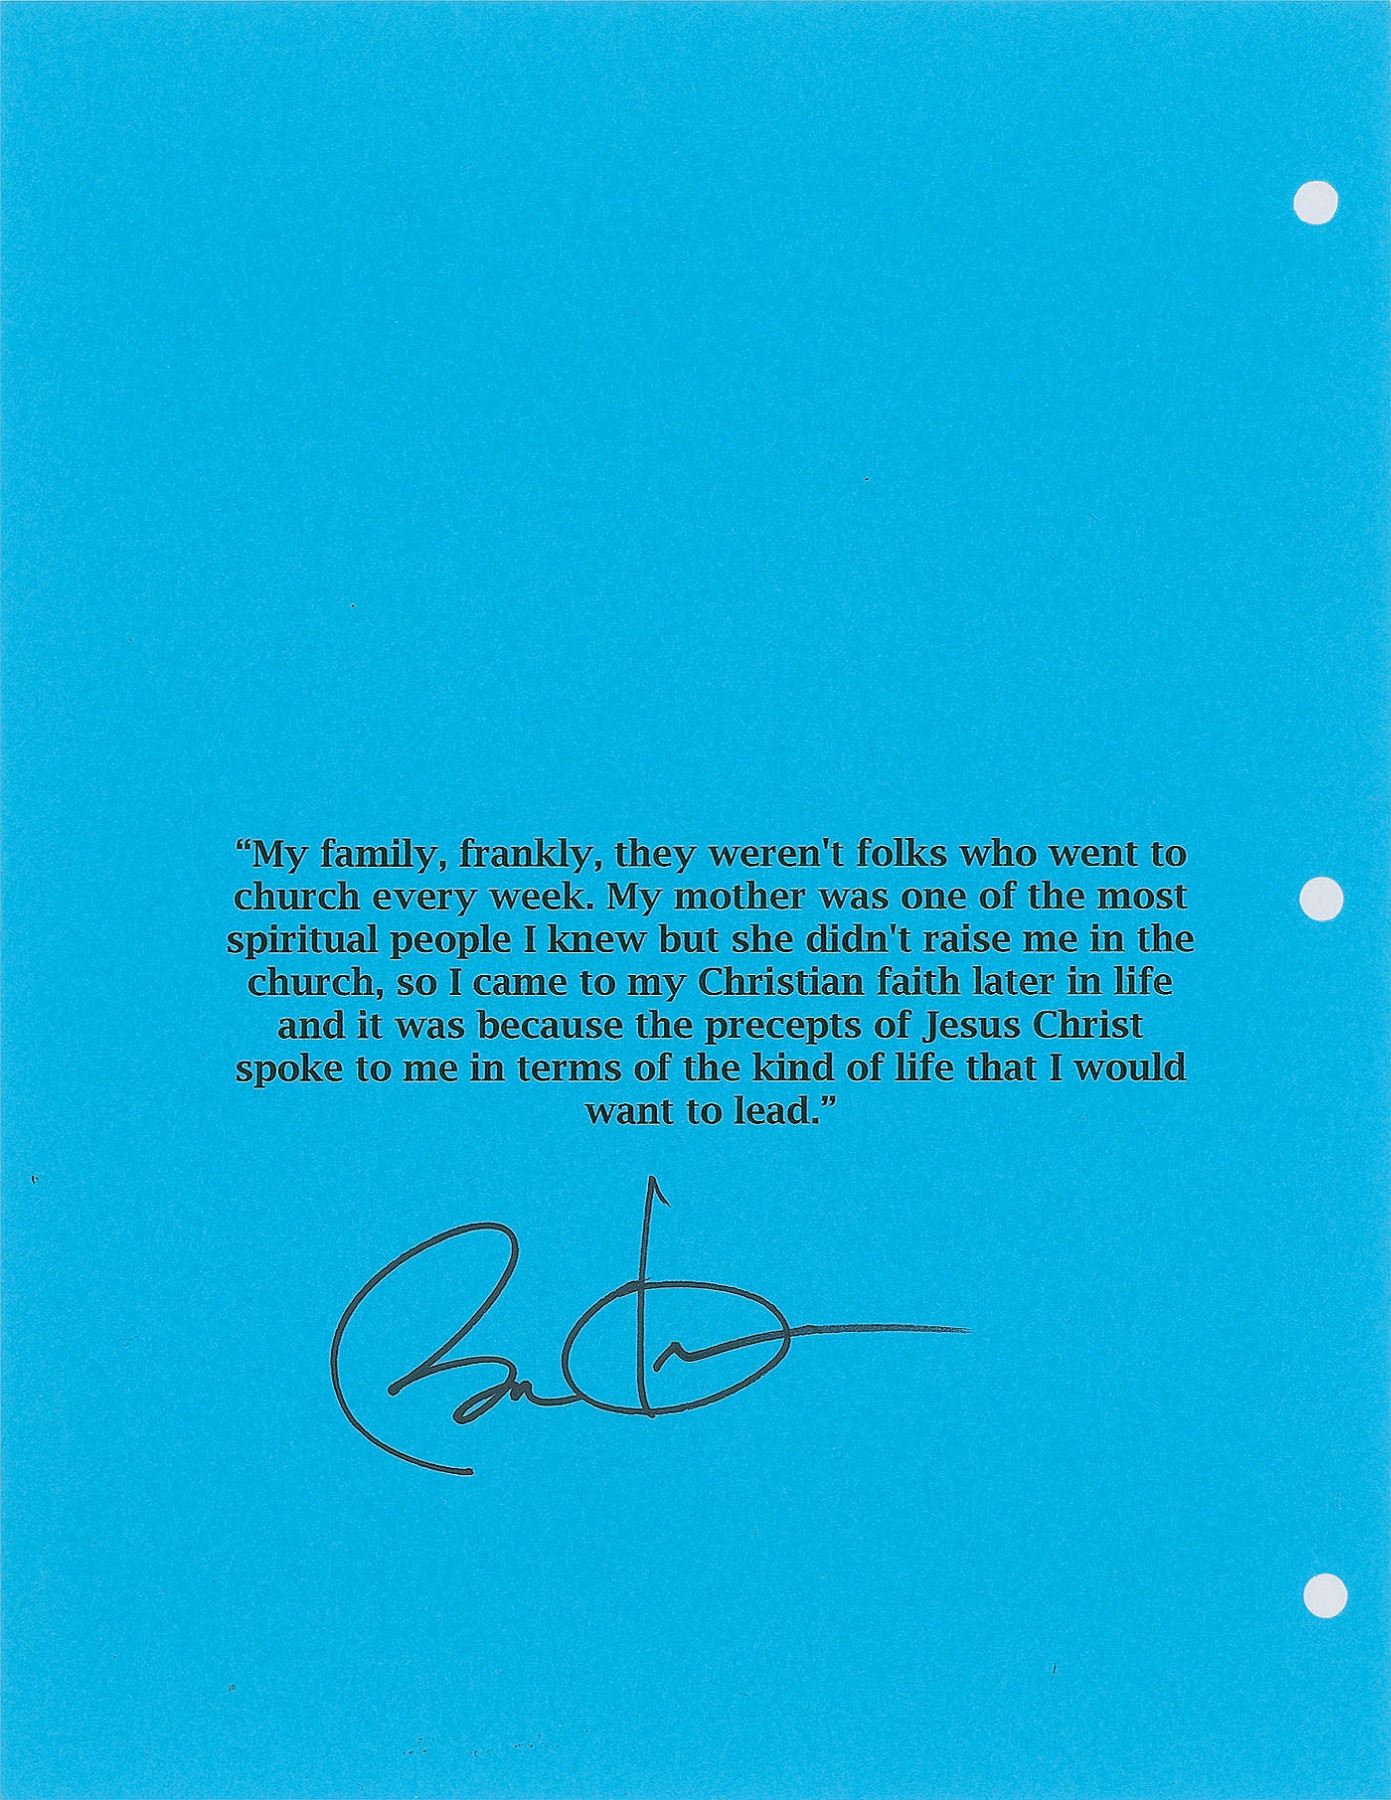 “My family, frankly, they weren't folks who went to
church every week. My mother was one of the most
spiritual people I knew but she didn't raise me in the
church, so I came to my Christian faith later in life
and it was because the precepts of Jesus Christ
spoke to me in terms of the kind of life that I would
want to lead.”